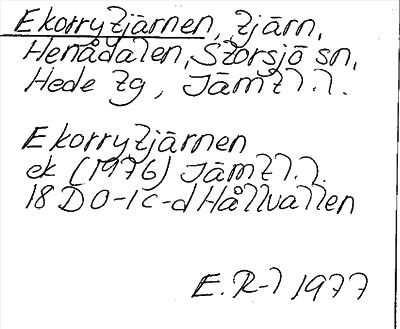 Ekorrtjärnen, tjärn,
Henådalen, Storsjö sn,
Hede tg, Jämtl.l.
Ekorrtjärnen
ek (1976) Jämtl.l.
18 D 0-1 c-d Hållvallen
E. R-l 1977